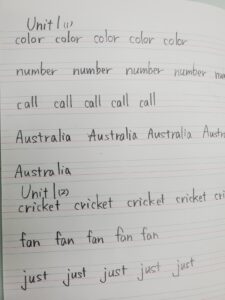 Unit 1 (1)
color color color color color
number number number number
call call call call call
Australia Australia Australia
Australia
Unit 1 (2)
cricket cricket cricket cricket
fan fan fan fan fan
just just just just just